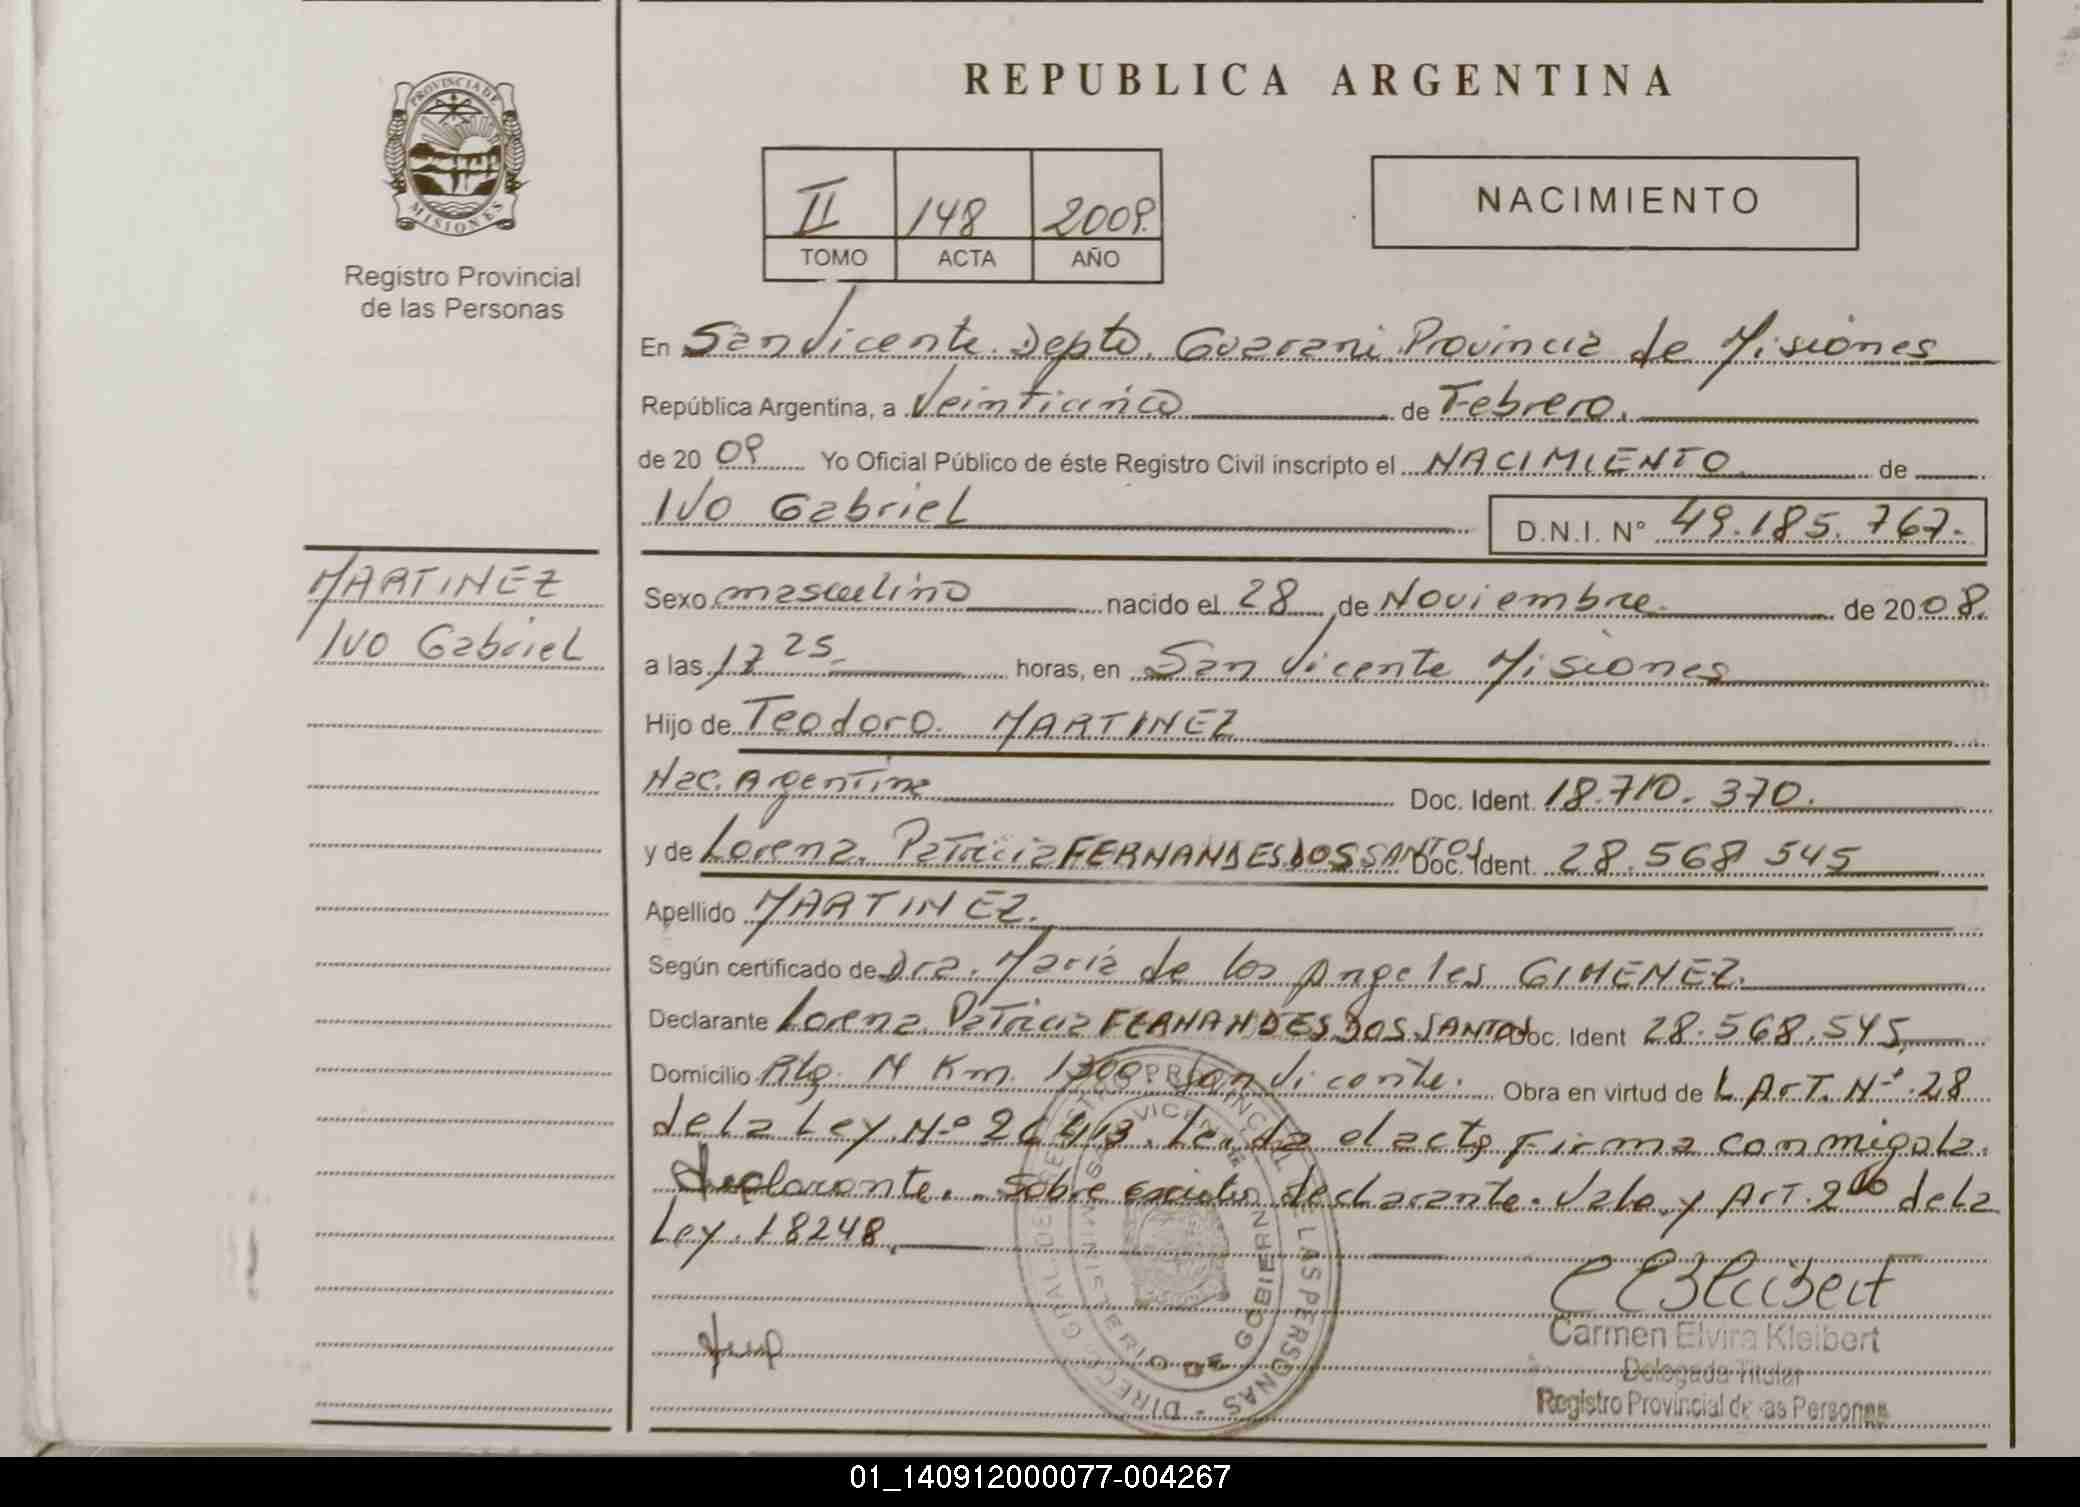 PROVINCIA DE
MISIONES
Registro Provincial
de las Personas
MARTINEZ
Ivo Gabriel
REPUBLICA ARGENTINA
II 148 2009.
TOMO ACTA AÑO
NACIMIENTO
En San Vicente. Depto. Guarani. Provincia de Misiones
República Argentina, a Veinticinco de Febrero.
de 20 09 Yo Oficial Público de éste Registro Civil inscripto el NACIMIENTO de
IVO Gabriel D.N.I. N° 49.185.767.
Sexo masculino nacido el 28 de Noviembre. de 2008.
a las 17 25 horas, en San Vicente Misiones
Hijo de Teodoro. MARTINEZ
Nac. Argentina Doc. Ident. 18.710.370.
y de Lorena. Patricia FERNANDES DOS SANTOS Doc. Ident. 28.568 545
Apellido MARTINEZ.
Según certificado de Dra. María de los Angeles GIMENEZ.
Declarante Lorena Patricia FERNANDES DOS SANTOS Doc. Ident 28.568.545,
Domicilio N Km. 1300 San Vicente. Obra en virtud de L Art. Nº 28
de la Ley. Nº 26.413. Leida el acta firma conmigo la.
declarante. Sobre escrito declarante. Vale. y Art. 2do de la
Ley. 18248.
Carmen Elvira Kleibert
Delegada Titular
Registro Provincial de las Personas
01_140912000077-004267